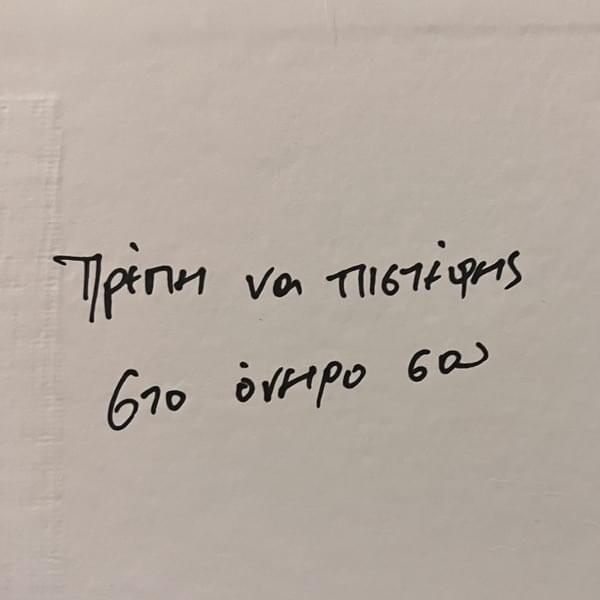 Πρέπει να πιστέψεις
στο όνειρο σου